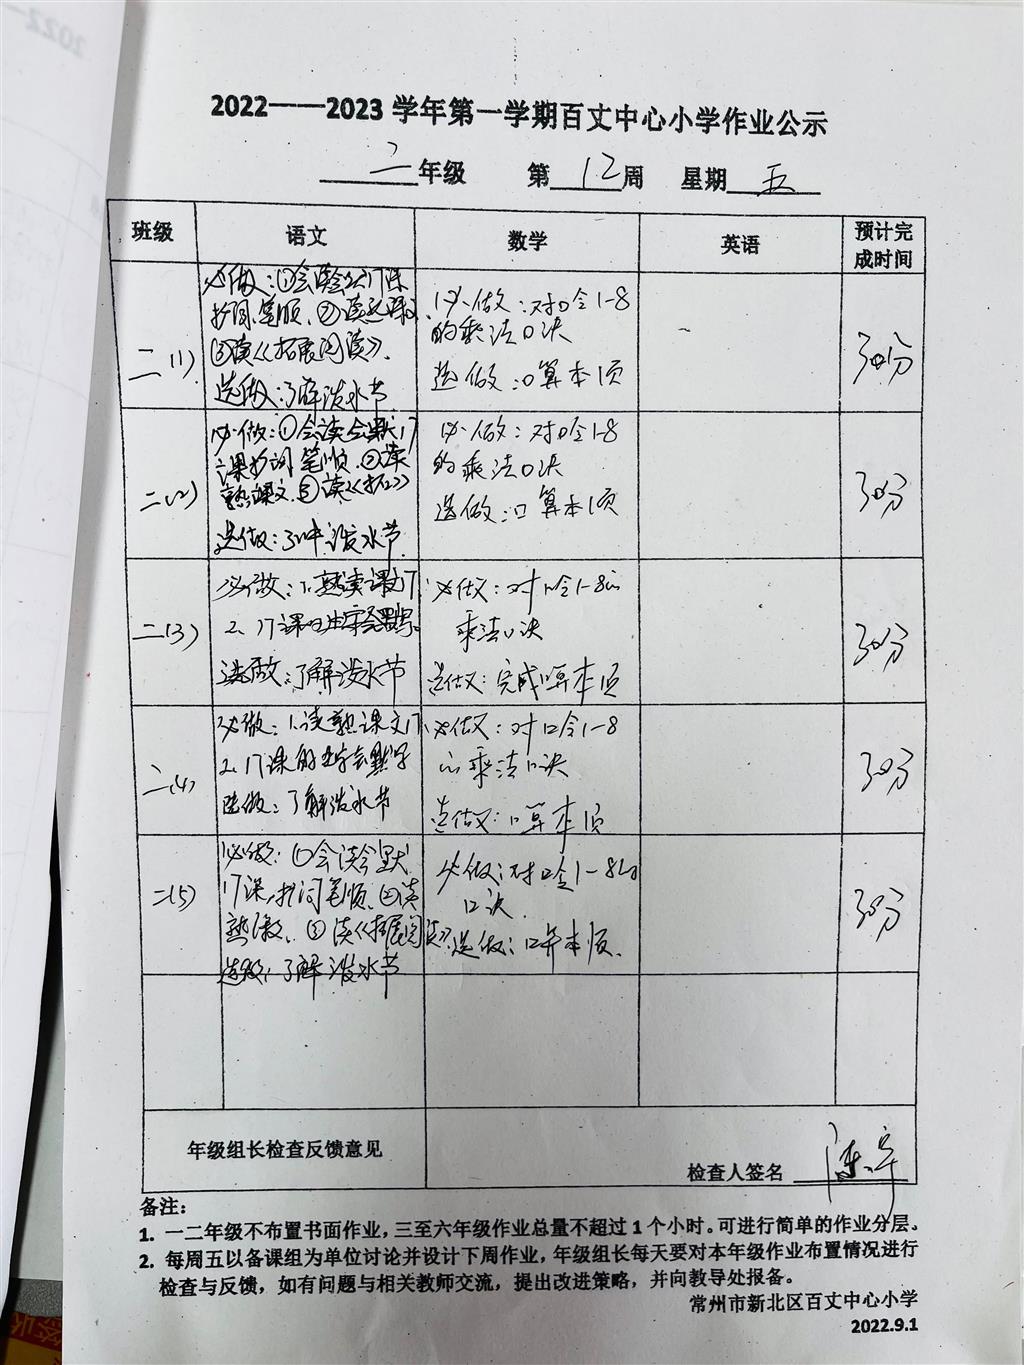 2022——2023学年第一学期百丈中心小学作业公示
二年级 第12周 星期五
班级 语文 数学 英语 预计完成时间
二(1)
必做:①会读会默17课
扩词、笔顺、②读熟课文、
③读《拓展阅读》.
选做:了解泼水节
1必做:对口令1-8
的乘法口决
选做:口算本1页
30分
二(2)
必做:①会读会默17
课扩词 笔顺.②读
熟课文.③读《拓》
选做:了解泼水节
必做:对口令1-8
的乘法口决
选做:口算本1页
30分
二(3)
必做:1.熟读课文17
2、17课生字会默写。
选做:了解泼水节
必做:对口令1-8的
乘法口决
选做:完成口算本1页
30分
二(4)
必做:1.读熟课文17.
2、17课的生字会默写
选做:了解泼水节
必做:对口令1-8
的乘法口决
选做:口算本1页
30分
二(5)
必做:①会读会默
17课,扩词笔顺.②读
熟课文.③读《拓展阅读》.
选做:了解泼水节
必做:对口令1-8的
口决.
选做:口算本1页.
30分
年级组长检查反馈意见
检查人签名
备注:
1. 一二年级不布置书面作业,三至六年级作业总量不超过1个小时。可进行简单的作业分层。
2. 每周五以备课组为单位讨论并设计下周作业,年级组长每天要对本年级作业布置情况进行
检查与反馈,如有问题与相关教师交流,提出改进策略,并向教导处报备。
常州市新北区百丈中心小学
2022.9.1